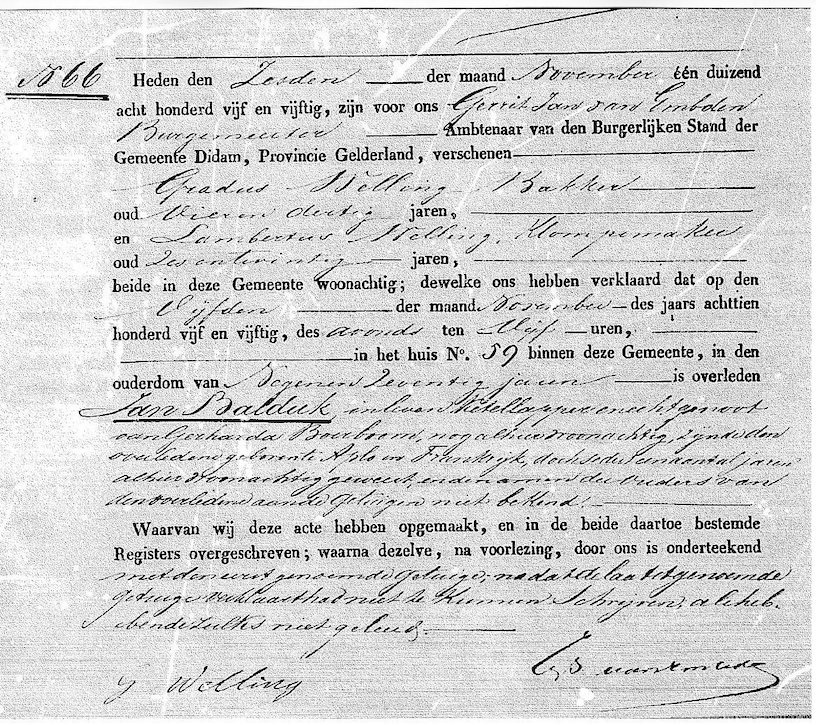 No 66
Heden den Zesden der maand November één duizend
acht honderd vijf en vijftig, zijn voor ons Gerrit Jan van Embden
Burgemeester Ambtenaar van den Burgerlijken Stand der
Gemeente Didam, Provincie Gelderland, verschenen
Gradus Welling Bakker
oud Vier en dertig jaren,
en Lambertus Welling, Klompemaker
oud Zes en twintig jaren,
beide in deze Gemeente woonachtig; dewelke ons hebben verklaard dat op den
Vijfden der maand November des jaars achttien
honderd vijf en vijftig, des avonds ten Vijf uren,
in het huis No. 59 binnen deze Gemeente, in den
ouderdom van Negen en Zeventig jaren is overleden
Jan Balduk, in leven Ketellapper, en echtgenoot
van Gerharda Boerboom, nog alhier woonachtig, zijnde den
overledene geboren te in Frankrijk, doch sedert een aantal jaren
alhier woonachtig geweest, en de namen der ouders van
den overledene aan de getuigen niet bekend.
Waarvan wij deze acte hebben opgemaakt, en in de beide daartoe bestemde
Registers overgeschreven; waarna dezelve, na voorlezing, door ons is onderteekend
met den eerst genoemde getuige, nadat de laatstgenoemde
getuige verklaard had niet te kunnen Schrijven, als heb-
bende zulks niet geleerd.
G Welling